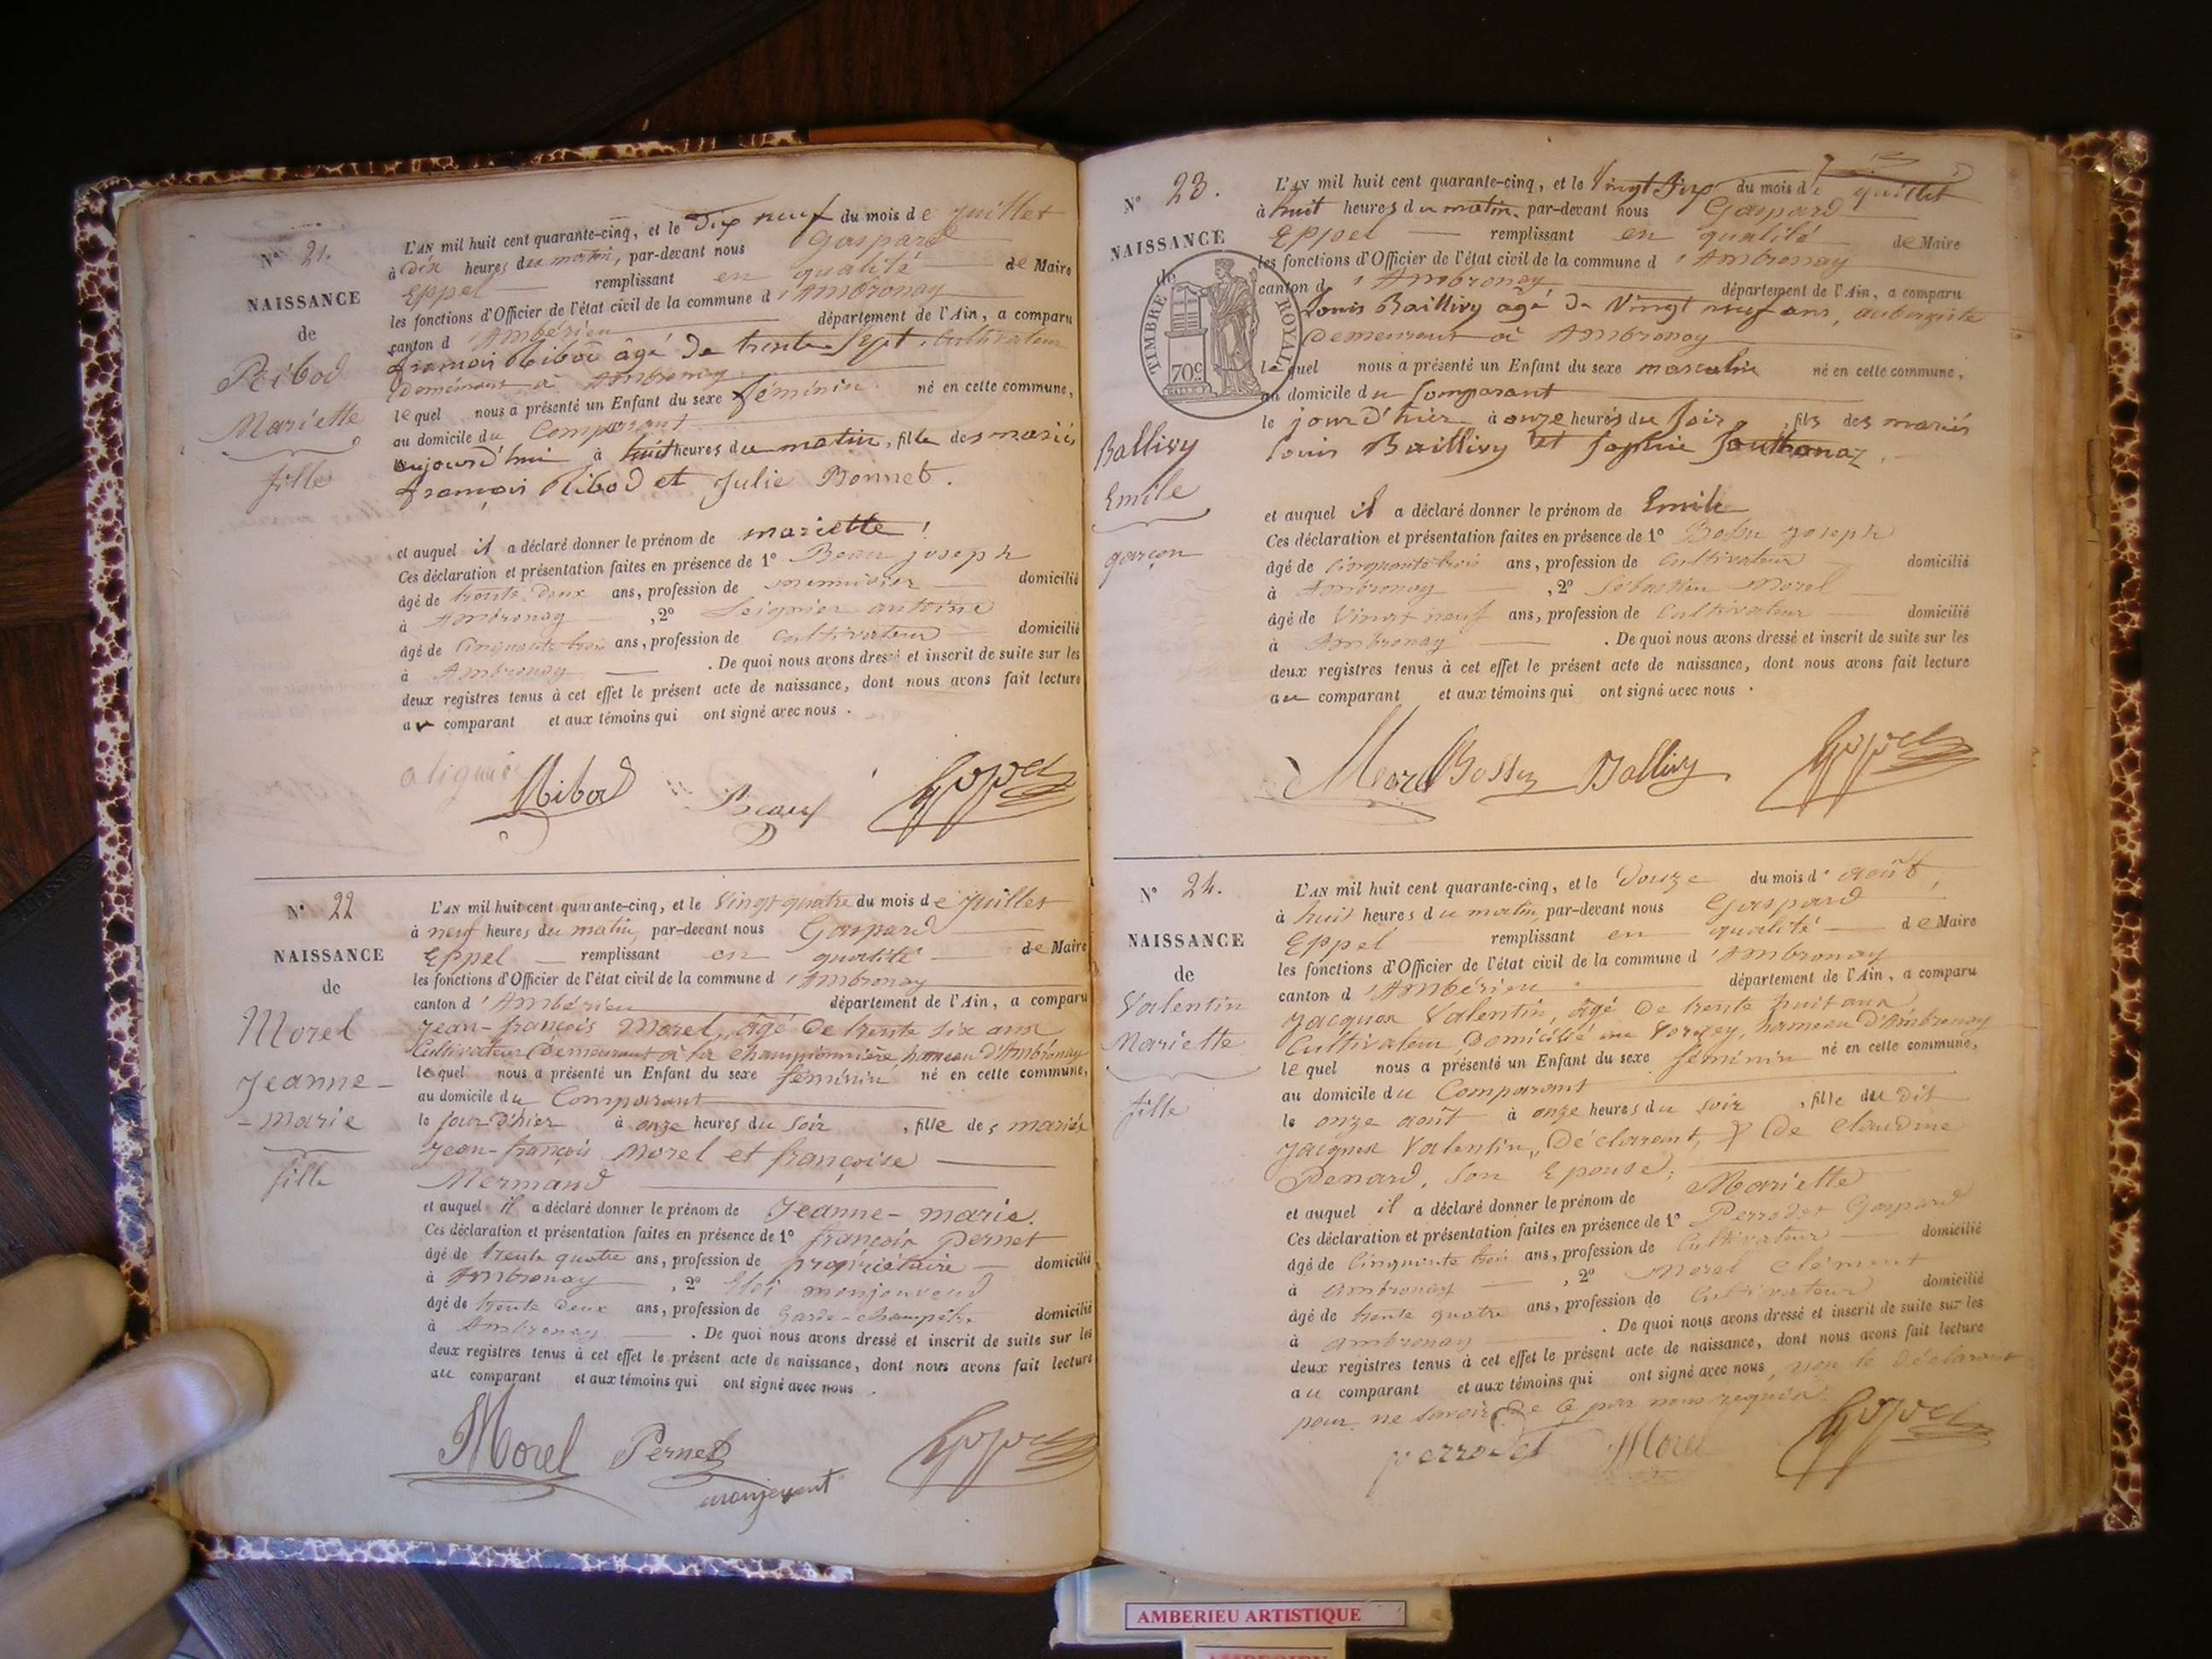 N° 21.
NAISSANCE
de
Ribod
Mariette
fille
L'AN mil huit cent quarante-cinq, et le Dix neuf du mois de juillet
à Dix heures du matin, par-devant nous Gaspard
Eppel remplissant en qualité de Maire
les fonctions d'Officier de l'état civil de la commune d'Ambronay
canton d'Ambérieu département de l'Ain, a comparu
françois Ribod âgé de trente Sept, Cultivateur
Demeurant à Ambronay
lequel nous a présenté un Enfant du sexe féminin né en cette commune,
au domicile du Comparant
aujourd'hui à huit heures du matin, fille des mariés
françois Ribod et Julie Bonnet.
et auquel il a déclaré donner le prénom de mariette !
Ces déclaration et présentation faites en présence de 1° Beau joseph
âgé de trente deux ans, profession de menuisier domicilié
à Ambronay , 2° Seignier antoine
âgé de Cinquante trois ans, profession de Cultivateur domicilié
à Ambronay . De quoi nous avons dressé et inscrit de suite sur les
deux registres tenus à cet effet le présent acte de naissance, dont nous avons fait lecture
au comparant et aux témoins qui ont signé avec nous .
Ribod Beau Eppel
N° 22
NAISSANCE
de
Morel
Jeanne-
-marie
fille
L'AN mil huit cent quarante-cinq, et le Vingt quatre du mois de juillet
à neuf heures du matin, par-devant nous Gaspard
Eppel remplissant en qualité de Maire
les fonctions d'Officier de l'état civil de la commune d'Ambronay
canton d'Ambérieu département de l'Ain, a comparu
Jean-françois Morel, âgé de trente six ans
Cultivateur Demeurant à la championnière, hameau d'Ambronay
lequel nous a présenté un Enfant du sexe féminin né en cette commune,
au domicile du Comparant
le jour d'hier à onze heures du soir , fille des mariés
Jean-françois Morel et françoise
Mermand
et auquel il a déclaré donner le prénom de Jeanne-marie.
Ces déclaration et présentation faites en présence de 1° françois Pernet
âgé de trente quatre ans, profession de propriétaire domicilié
à Ambronay , 2° Eloi monjeuvend
âgé de trente deux ans, profession de Garde-champêtre domicilié
à Ambronay . De quoi nous avons dressé et inscrit de suite sur les
deux registres tenus à cet effet le présent acte de naissance, dont nous avons fait lecture
au comparant et aux témoins qui ont signé avec nous .
Morel Pernet Eppel
N° 23.
NAISSANCE
de
TIMBRE ROYAL
70c
Ballivy
Emile
garçon
L'AN mil huit cent quarante-cinq, et le Vingt Six du mois de juillet
à huit heures du matin, par-devant nous Gaspard
Eppel remplissant en qualité de Maire
les fonctions d'Officier de l'état civil de la commune d'Ambronay
canton d'Ambronay département de l'Ain, a comparu
Louis Baillivy agé de Vingt neuf ans, aubergiste
Demeurant à Ambronay
lequel nous a présenté un Enfant du sexe masculin né en cette commune,
au domicile du Comparant
le jourd'hier à onze heures du soir , fils des mariés
Louis Baillivy et Sophie Southonax.
et auquel il a déclaré donner le prénom de Emile
Ces déclaration et présentation faites en présence de 1° joseph
âgé de Cinquante trois ans, profession de Cultivateur domicilié
à Ambronay , 2° Sébastien Morel
âgé de Vingt neuf ans, profession de Cultivateur domicilié
à Ambronay . De quoi nous avons dressé et inscrit de suite sur les
deux registres tenus à cet effet le présent acte de naissance, dont nous avons fait lecture
au comparant et aux témoins qui ont signé avec nous .
Morel Ballivy Eppel
N° 24.
NAISSANCE
de
Valentin
Mariette
fille
L'AN mil huit cent quarante-cinq, et le Douze du mois d'août,
à huit heures du matin, par-devant nous Gaspard
Eppel remplissant en qualité de Maire
les fonctions d'Officier de l'état civil de la commune d'Ambronay
canton d'Ambérieu département de l'Ain, a comparu
Jacques Valentin, âgé de trente huit ans,
Cultivateur, Domicilié au Vorgey, hameau d'Ambronay
lequel nous a présenté un Enfant du sexe féminin né en cette commune,
au domicile du Comparant
le onze août à onze heures du soir , fille du dit
Jacques Valentin, Déclarant, & de Claudine
Penard, son Epouse;
et auquel il a déclaré donner le prénom de Mariette
Ces déclaration et présentation faites en présence de 1° Perrodet Gaspard
âgé de Cinquante trois ans, profession de Cultivateur domicilié
à Ambronay , 2° Morel Clément
âgé de trente quatre ans, profession de Cultivateur domicilié
à Ambronay . De quoi nous avons dressé et inscrit de suite sur les
deux registres tenus à cet effet le présent acte de naissance, dont nous avons fait lecture
au comparant et aux témoins qui ont signé avec nous, non le déclarant
pour ne savoir de ce par nous requis.
perrodet Morel Eppel
AMBERIEU ARTISTIQUE